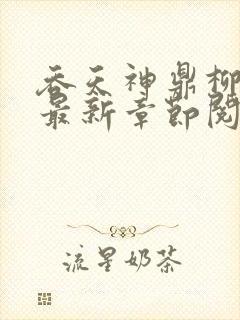 吞天神鼎柳
最新章节阅
流星奶茶